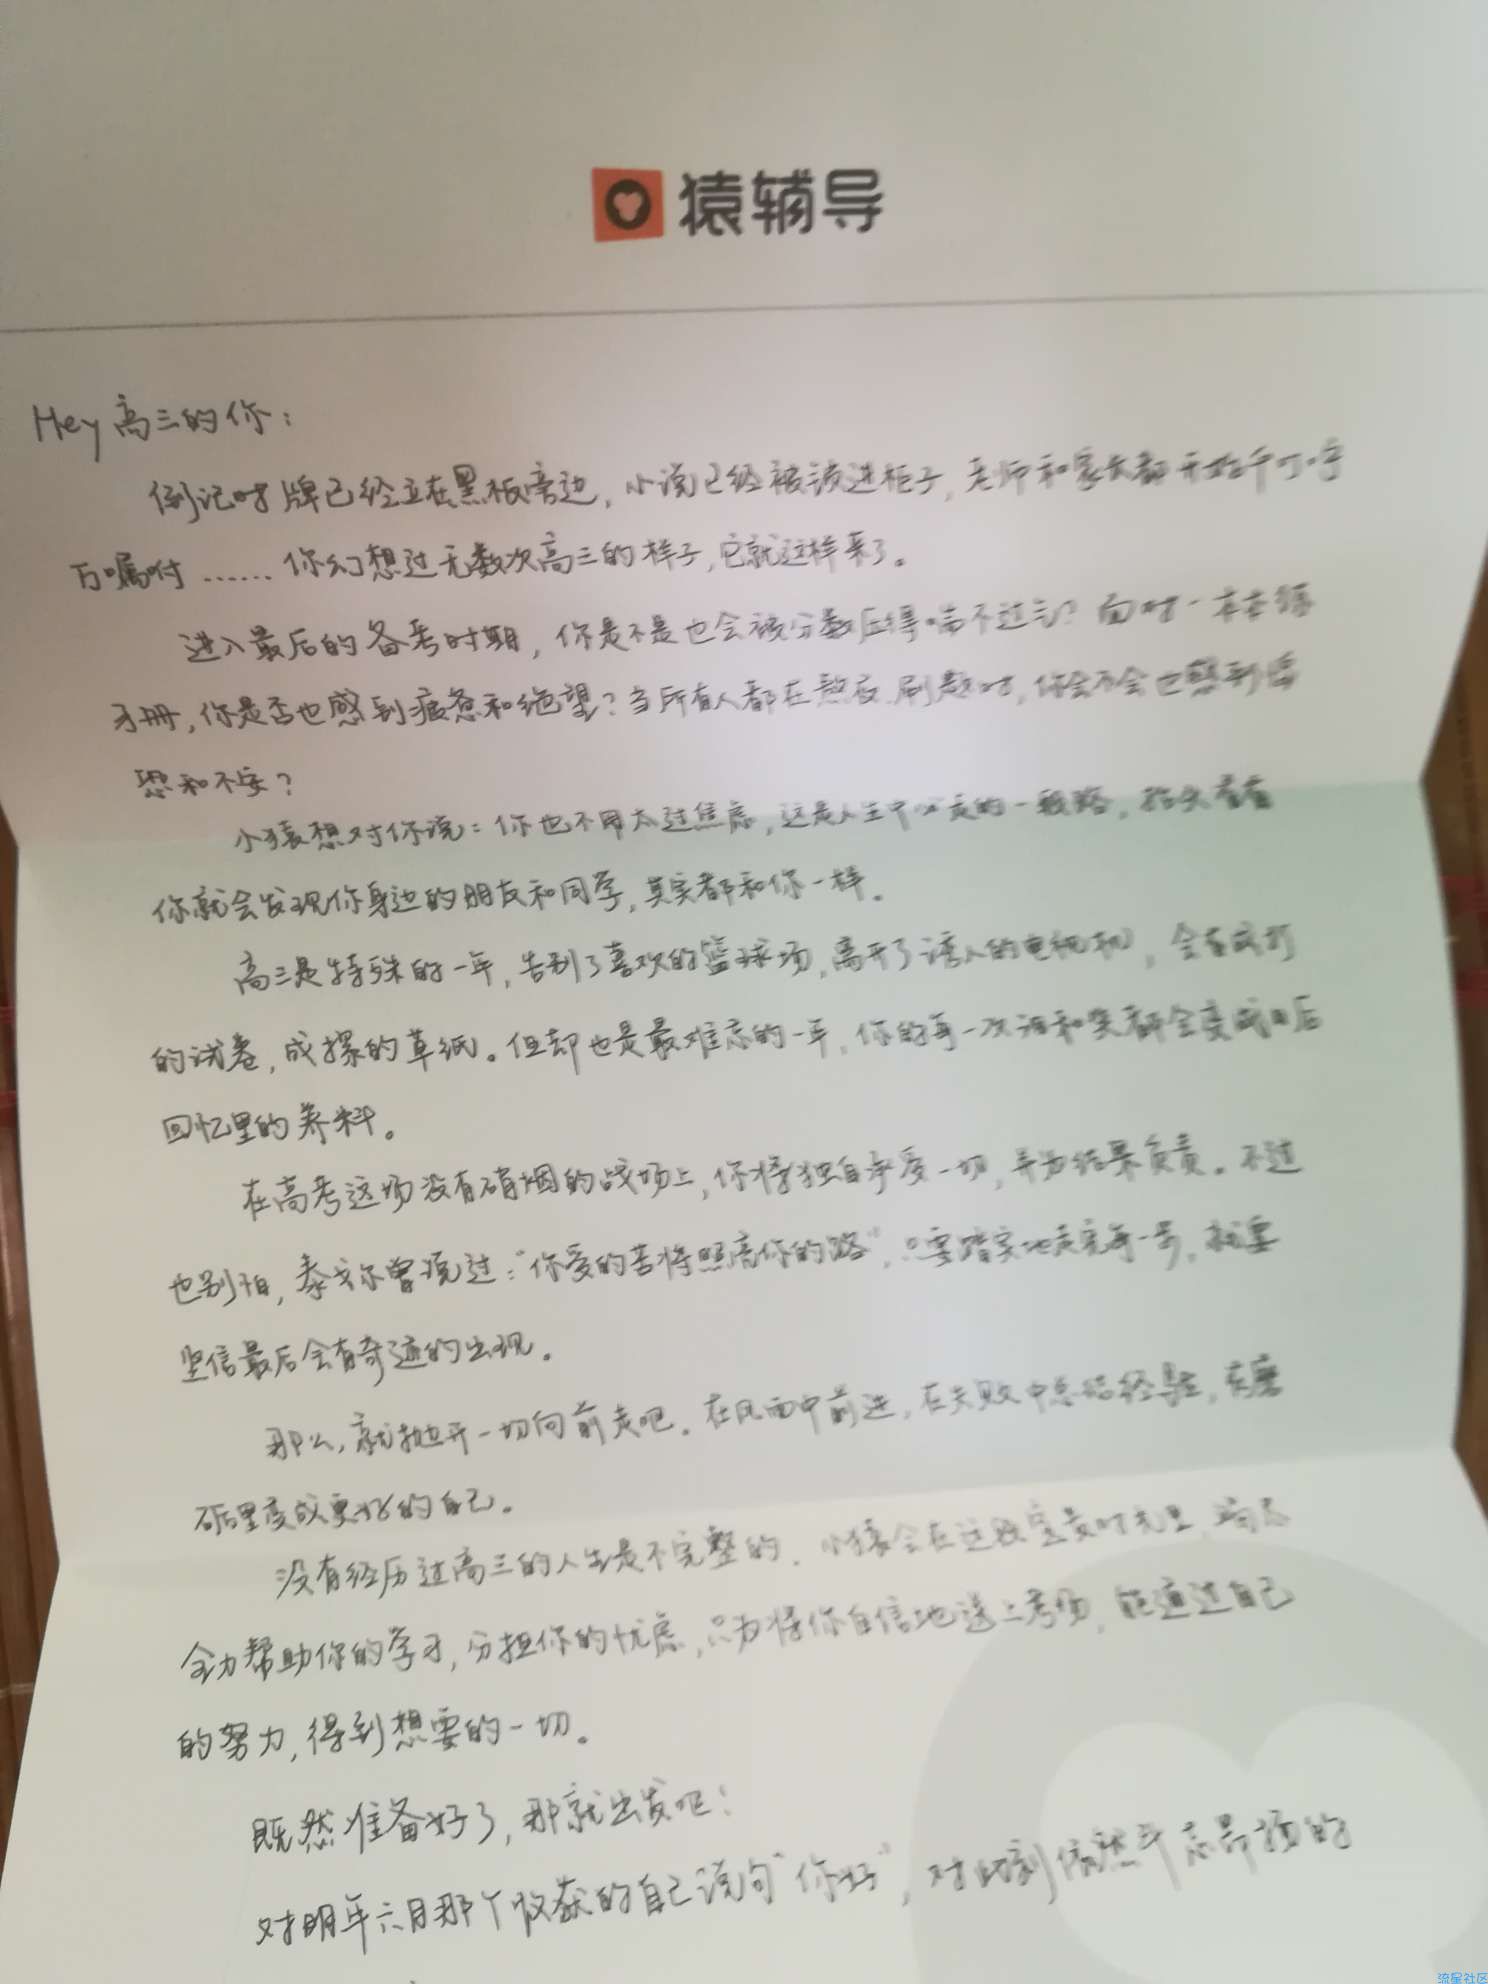 猿辅导
Hey 高三的你：
倒记时牌已经立在黑板旁边，小说已经被锁进柜子，老师和家长都开始千叮咛
万嘱咐……你幻想过无数次高三的样子，它就这样来了。
进入最后的备考时期，你是不是也会被分数压得喘不过气？面对一本本练
习册，你是否也感到疲惫和绝望？当所有人都在熬夜刷题时，你会不会也感到惶
恐和不安？
小猿想对你说：你也不用太过焦虑，这是人生中必走的一段路，抬头看看
你就会发现你身边的朋友和同学，其实都和你一样。
高三是特殊的一年，告别了喜欢的篮球场，离开了诱人的电视机，会有成打
的试卷，成摞的草纸。但却也是最难忘的一年，你的每一次泪和笑都会变成日后
回忆里的养料。
在高考这场没有硝烟的战场上，你将独自承受一切，并为结果负责。不过
也别怕，泰戈尔曾说过：“你受的苦将照亮你的路”，只要踏实地走完每一步，就要
坚信最后会有奇迹的出现。
那么，就抛开一切向前走吧。在风雨中前进，在失败中总结经验，在磨
砺里变成更好的自己。
没有经历过高三的人生是不完整的，小猿会在这段宝贵时光里，竭尽
全力帮助你的学习，分担你的忧虑，只为将你自信地送上考场，能通过自己
的努力，得到想要的一切。
既然准备好了，那就出发吧！
对明年六月那个收获的自己说句“你好”，对此刻依然斗志昂扬的
流星社区